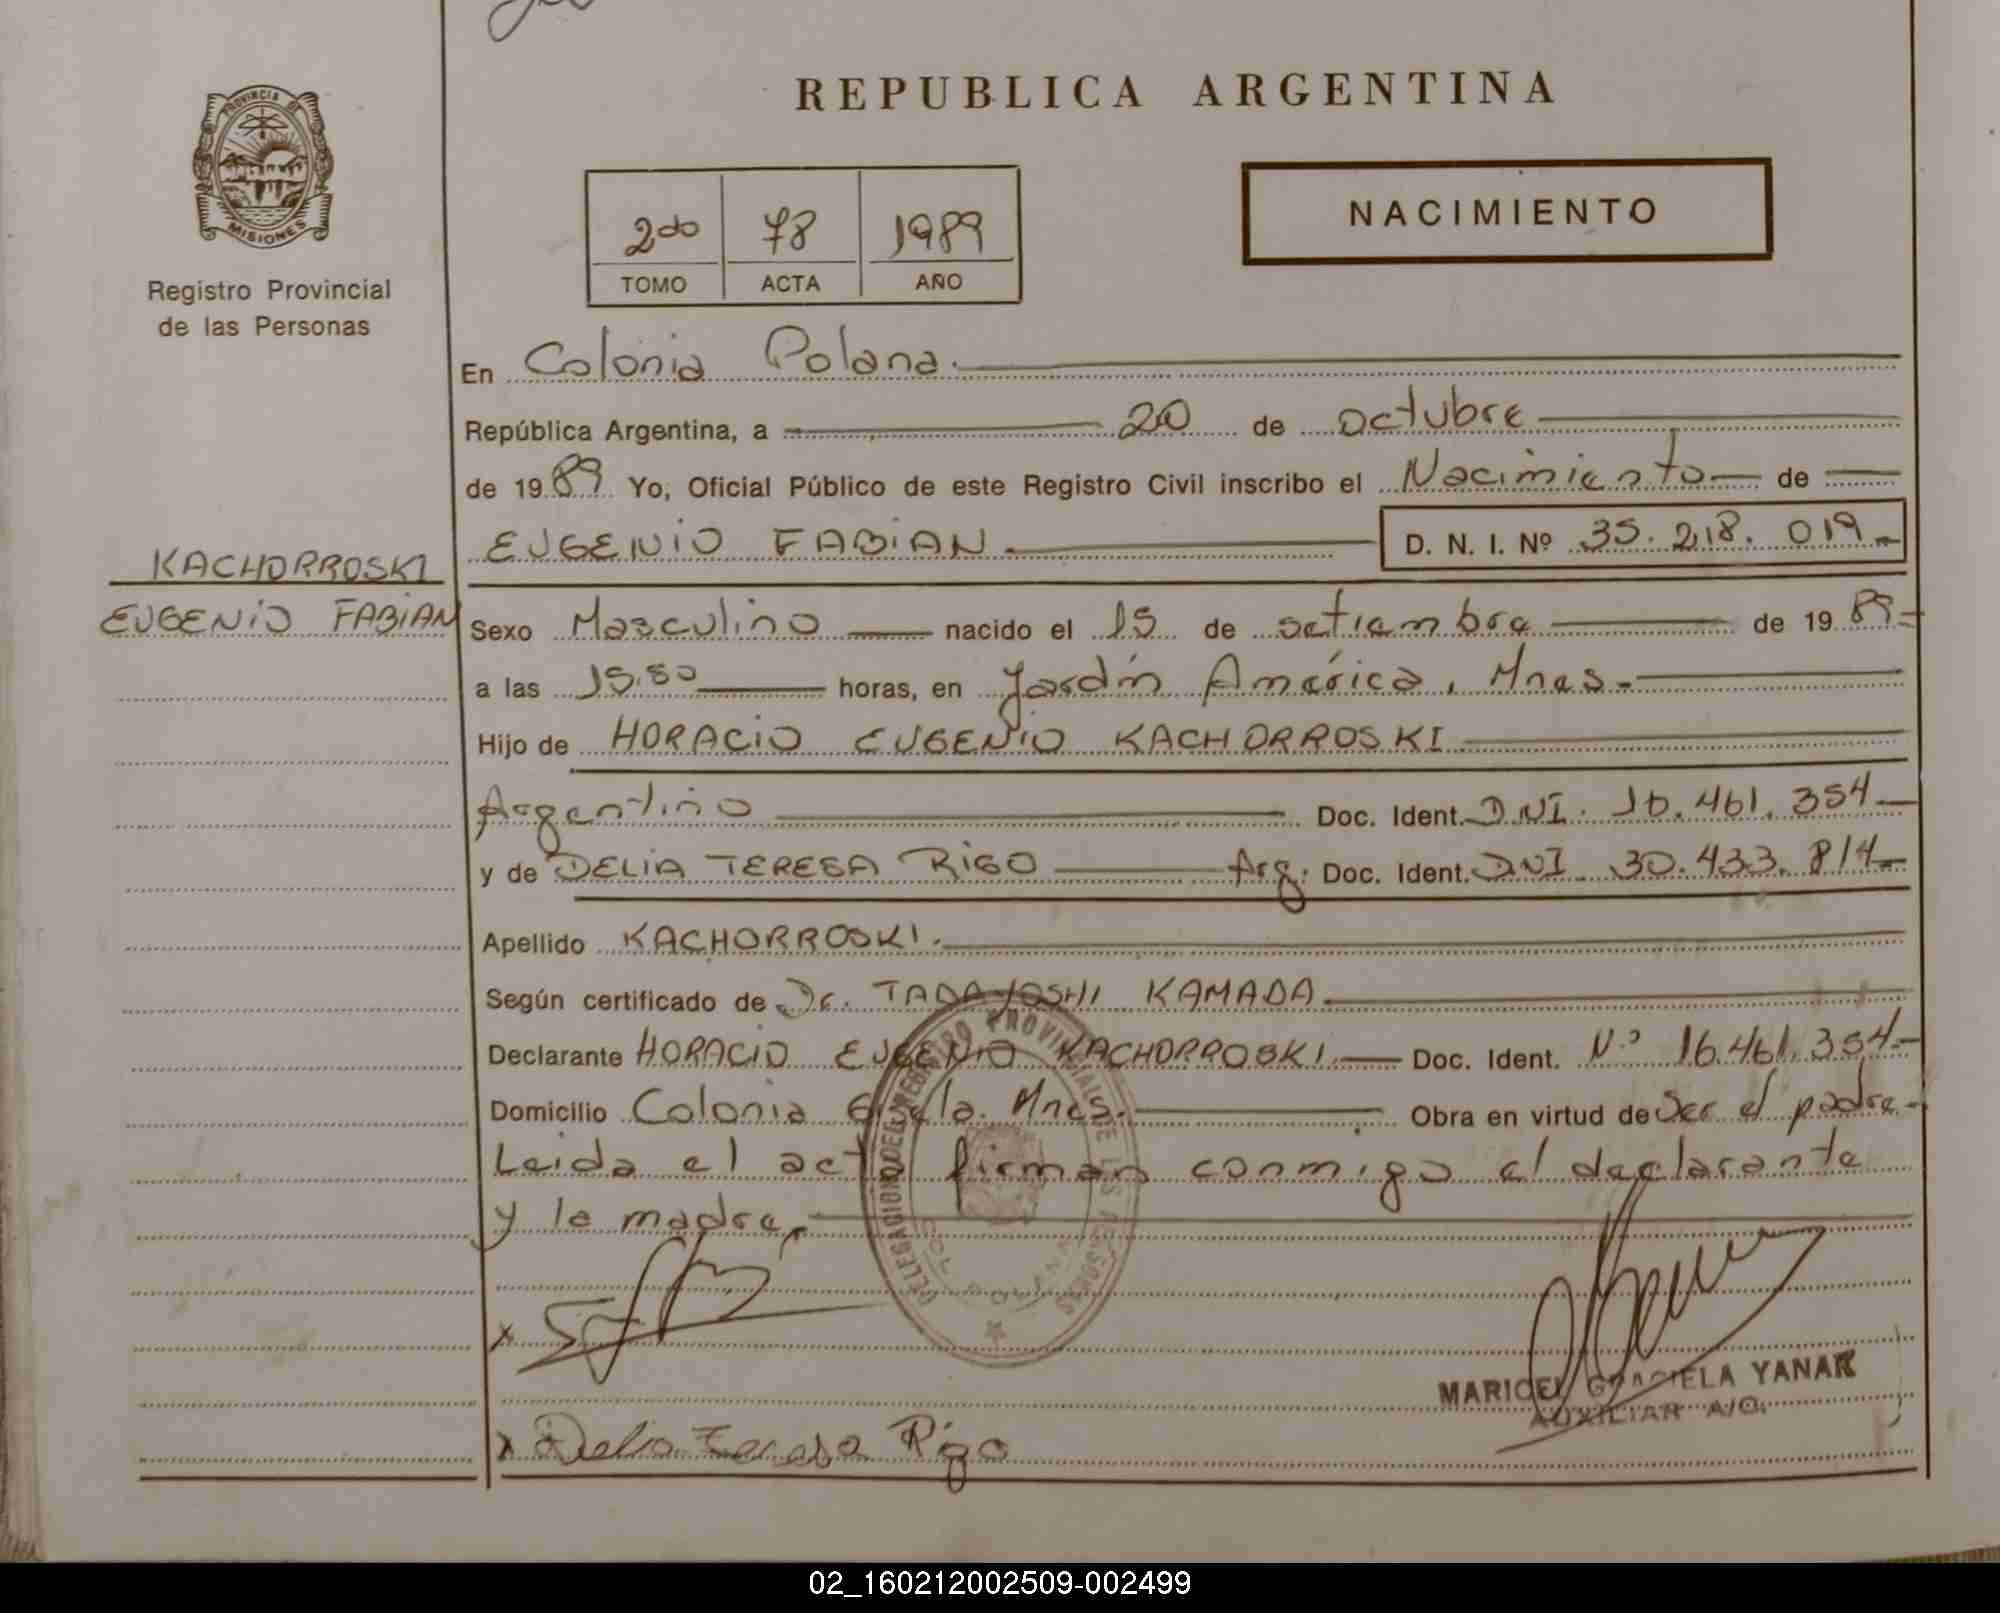 REPUBLICA ARGENTINA
PROVINCIA DE
MISIONES
Registro Provincial
de las Personas
2do 78 1989
TOMO ACTA AÑO
NACIMIENTO
En Colonia Polana.
República Argentina, a 20 de octubre
de 1989 Yo, Oficial Público de este Registro Civil inscribo el Nacimiento de
EUGENIO FABIAN D. N. I. Nº 35.218.019.-
KACHORROSKI
EUGENIO FABIAN
Sexo Masculino nacido el 15 de setiembre de 1989.-
a las horas, en Jardín América, Mnes.-
Hijo de HORACIO EUGENIO KACHORROSKI
Argentino Doc. Ident. DNI. 16.461.354
y de DELIA TERESA RIGO Arg. Doc. Ident. DNI. 30.433.814.-
Apellido KACHORROSKI.
Según certificado de Dr. TADAYOSHI KAMADA
Declarante HORACIO EUGENIO KACHORROSKI. Doc. Ident. Nº 16.461.354.-
Domicilio Colonia Mnes. Obra en virtud de ser el padre.-
Leida el acta firman conmigo el declarante
y la madre.
DELEGACION DEL REGISTRO PROVINCIAL DE LAS PERSONAS
COL. POLANA
x
MARICEL GRACIELA YANAK
AUXILIAR A/C.
x Delia Teresa Rigo
02_160212002509-002499